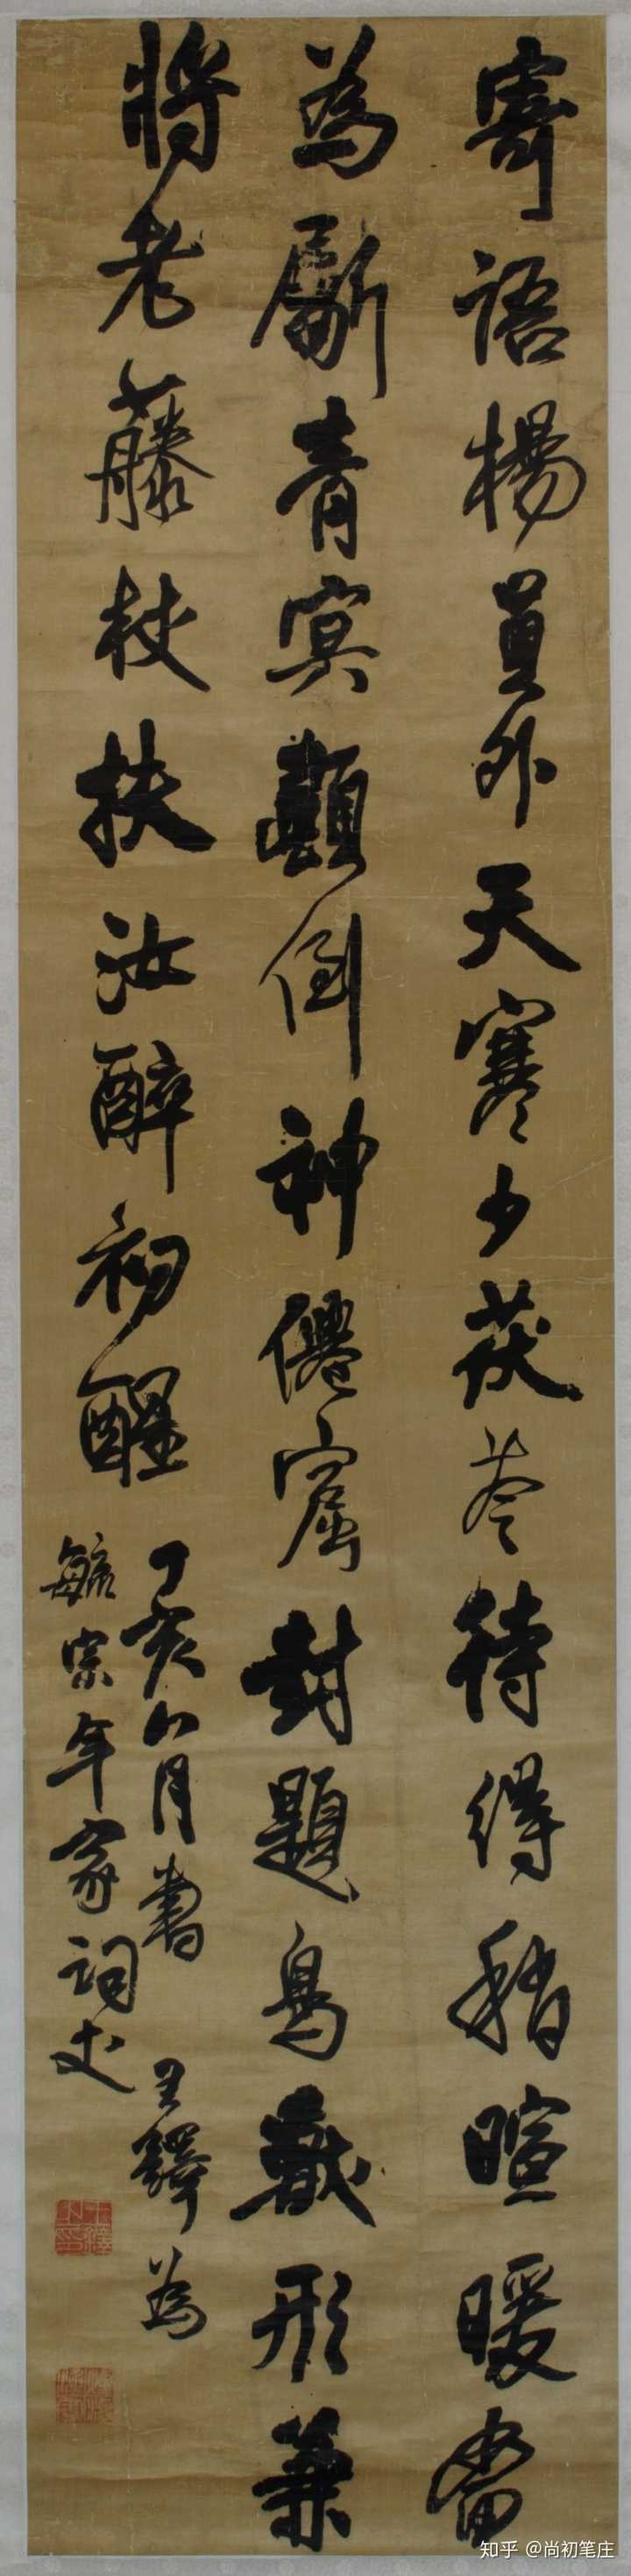 寄語楊員外天寒少茯苓待得稍暄暖當
為劚青冥顛倒神僊窟封題鳥獸形兼
將老藤杖扶汝醉初醒
丁亥八月書
王鐸為
毓宗年家詞丈
知乎 @尚初笔庄